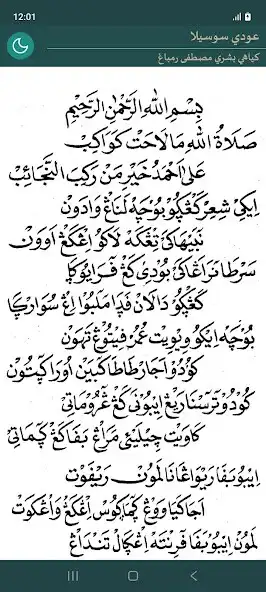 12:01
عودي سوسيلا
كياهي بشري مصطفى رمباڠ
بِسْمِ اللهِ الرَّحْمٰنِ الرَّحِيْمِ
صَلَاةُ اللهِ مَا لَاحَتْ كَوَاكِبْ
عَلَى اَحْمَدْ خَيْرِ مَنْ رَكِبَ النَّجَائِبْ
اِيكِيْ شِعِرْ كَڠْڮَوْ بَوْچَهْ لَنَاڠْ وَادَوْنْ
نَبِيْهَاكَيْ تِڠْكَهْ لَاكُوْ اِڠْكَڠْ اَوَوْنْ
سَرْطَا نَرَاڠَاكَيْ بُوْدِيْ كَڠْ فَرَايُوْڮَا
كَڠْڮَوْ دَالَانْ فَدَا مَلَبُوْ اِڠْ سُوَارْڮَا
بَوْچَهْ اِيْكُوْ وِيْوِيْتْ عُمُرْ فِيْتُوْڠْ تَهُوْنْ
كُوْدُوْ اَجَارْ طَاطَا كَبَيْنْ اَوْرَا ڮَتُوْنْ
كُوْدُوْ تْرَسْنَا رِيْڠْ اِيْبُوْنَيْ كَڠْ ڠْرُوْمَاتِيْ
كَاوِيْتْ چِيْلِيْئَيْ مَرِيْڠْ بَفَا كَڠْ ڮَمَاتِيْ
اِيْبُوْ بَفَا رَيْوَاڠَانَا لَمَوْنْ رَيْفَوْتْ
اَجَا كَيَا وَوْڠْ ڮَمَاڮُوْسْ اِڠْكَڠْ وَاڠْكَوْتْ
لَمَوْنْ اِيْبُوْ بَفَا فْرِيْنْتَهْ اِڠْڮَالْ تَنْدَاڠْ